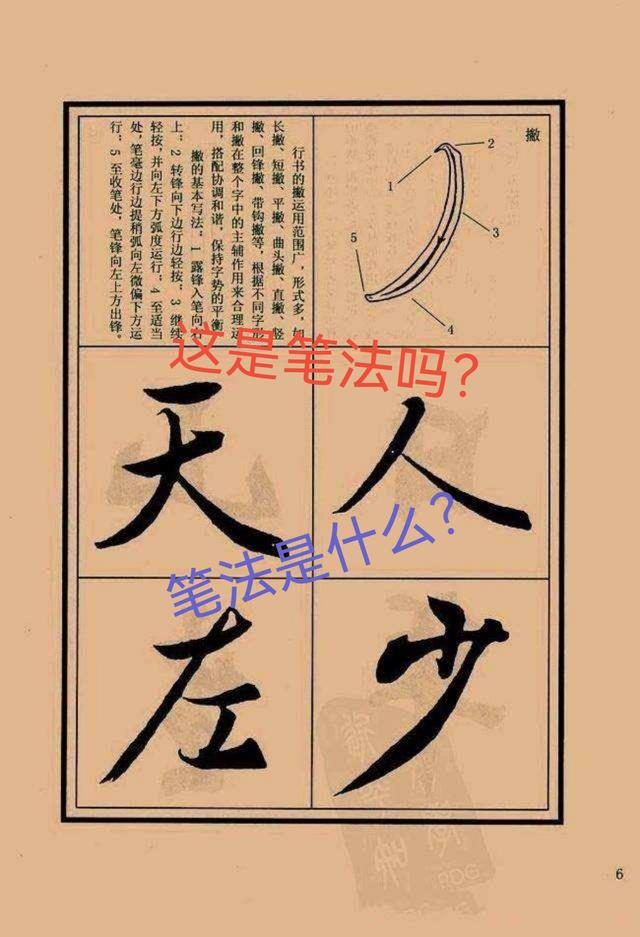 撇
2
1
3
5
4
行书的撇运用范围广，形式多，如
长撇、短撇、平撇、曲头撇、直撇、竖
撇、回锋撇、带钩撇等，根据不同字形
和撇在整个字中的主辅作用来合理运
用，搭配协调和谐，保持字势的平衡。
撇的基本写法：1 露锋入笔向右
上；2 转锋向下边行边轻按；3 继续
轻按，并向左下方弧度运行；4 至适当
处，笔毫边行边提稍弧向左微偏下方运
行；5 至收笔处，笔锋向左上方出锋。
这是笔法吗？
人
天
笔法是什么？
少
左
PDG
6